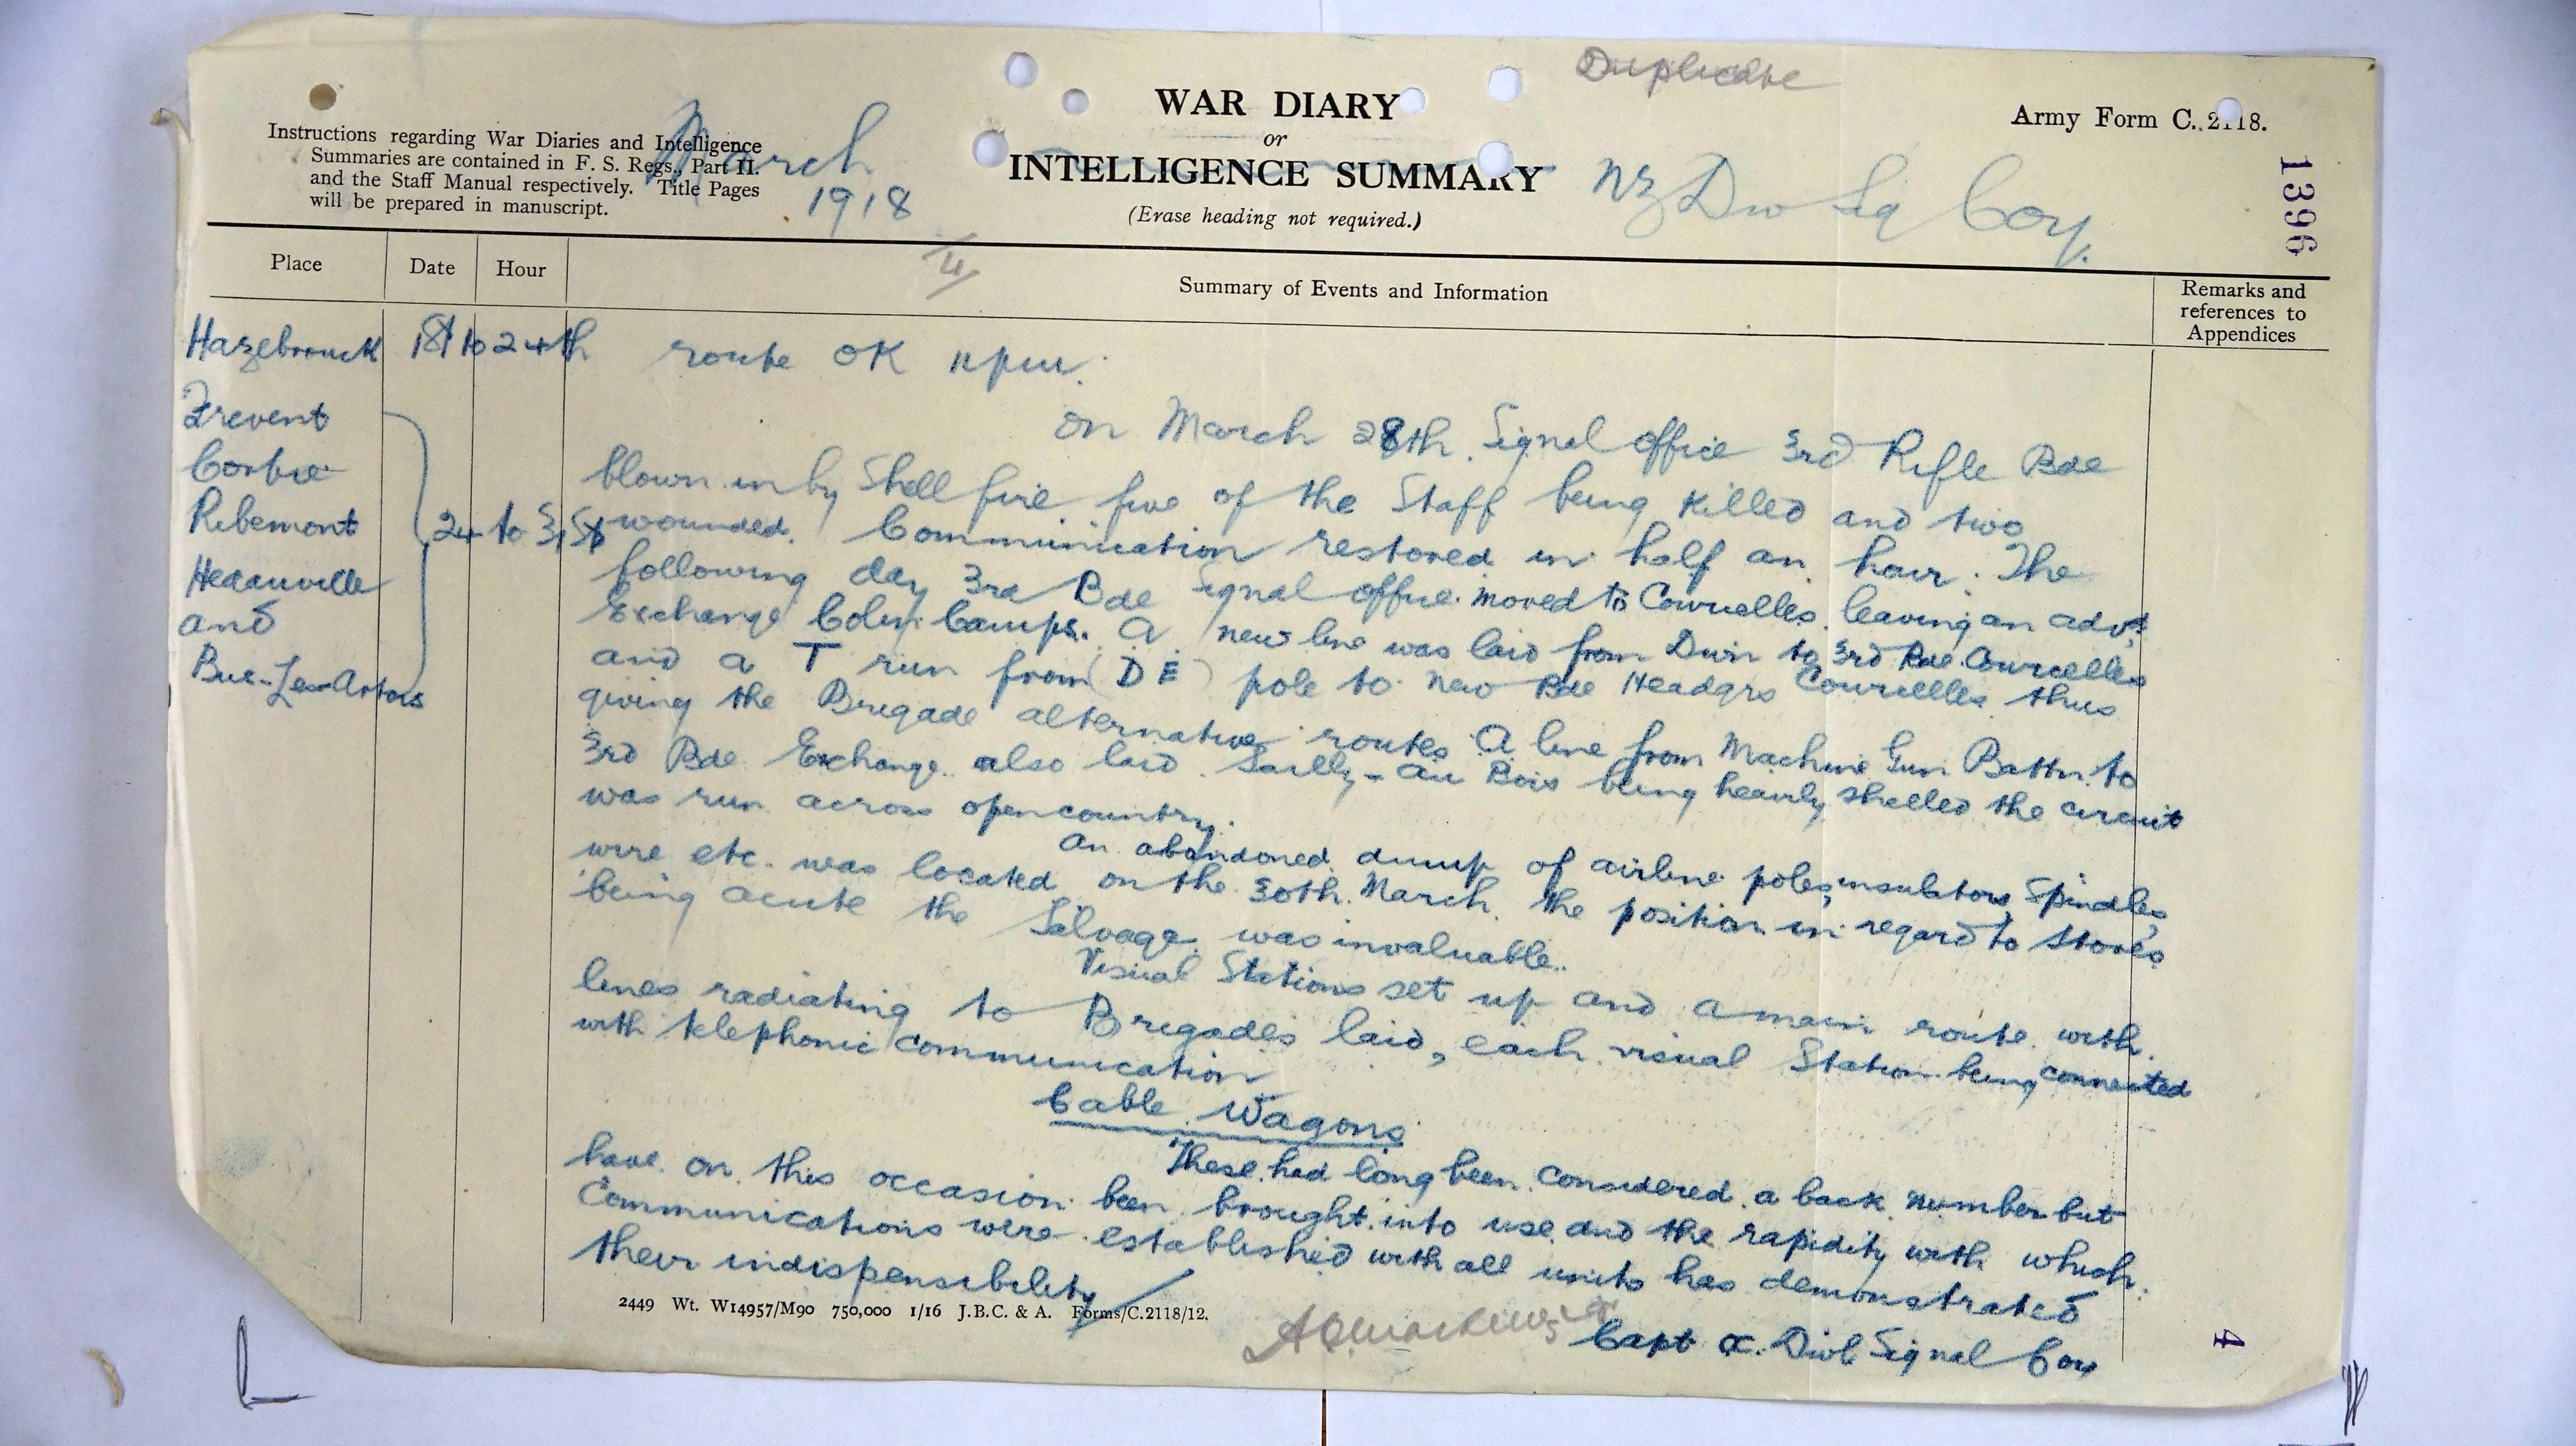 Duplicate
WAR DIARY
or
INTELLIGENCE SUMMARY
(Erase heading not required.)
Army Form C. 2118.
Instructions regarding War Diaries and Intelligence
Summaries are contained in F. S. Regs., Part II.
and the Staff Manual respectively. Title Pages
will be prepared in manuscript.
March
1918
NZ Div Sig Coy.
1396
Place
Date
Hour
Summary of Events and Information
Remarks and
references to
Appendices
Hazebrouck 18th to 24th route OK
Frevent
Corbie
Ribemont
Hedauville
and
Bus-Les-Artois
24 to 31st
On March 28th. Signal office 3rd Rifle Bde
blown in by Shell fire five of the Staff being killed and two
wounded. Communication restored in half an hour. The
following day 3rd Bde Signal office moved to Courcelles leaving an advd
Exchange Colin Camps. A new line was laid from Divn to 3rd Bde Courcelles
and a T run from (DE) pole to new Bde Headqrs Courcelles thus
giving the Brigade alternative routes. A line from Machine Gun Battn. to
3rd Bde Exchange also laid. Sailly-au Bois being heavily shelled the circuit
was run across open country.
An abandoned dump of airline poles, insulators, Spindles,
wire etc. was located on the 30th. March. The position in regard to Stores
being acute the Salvage was invaluable.
Visual Stations set up and a main route with
lines radiating to Brigades laid, each visual Station being connected
with telephonic communication
Cable Wagons
These had long been considered a back number but
have on this occasion been brought into use and the rapidity with which
Communications were established with all units has demonstrated
their indispensibility
2449 Wt. W14957/M90 750,000 1/16 J.B.C. & A. Forms/C.2118/12.
Capt OC. Divl Signal Coy
4